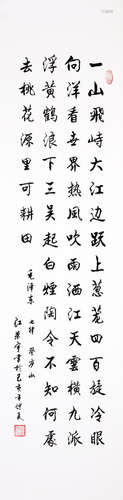 一山飛峙大江边跃上葱茏四百旋冷眼
向洋看世界热風吹雨洒江天雲横九派
浮黄鶴浪下三吴起白烟陶令不知何處
去桃花源里可耕田
毛泽东 七律 登庐山
書於己亥年